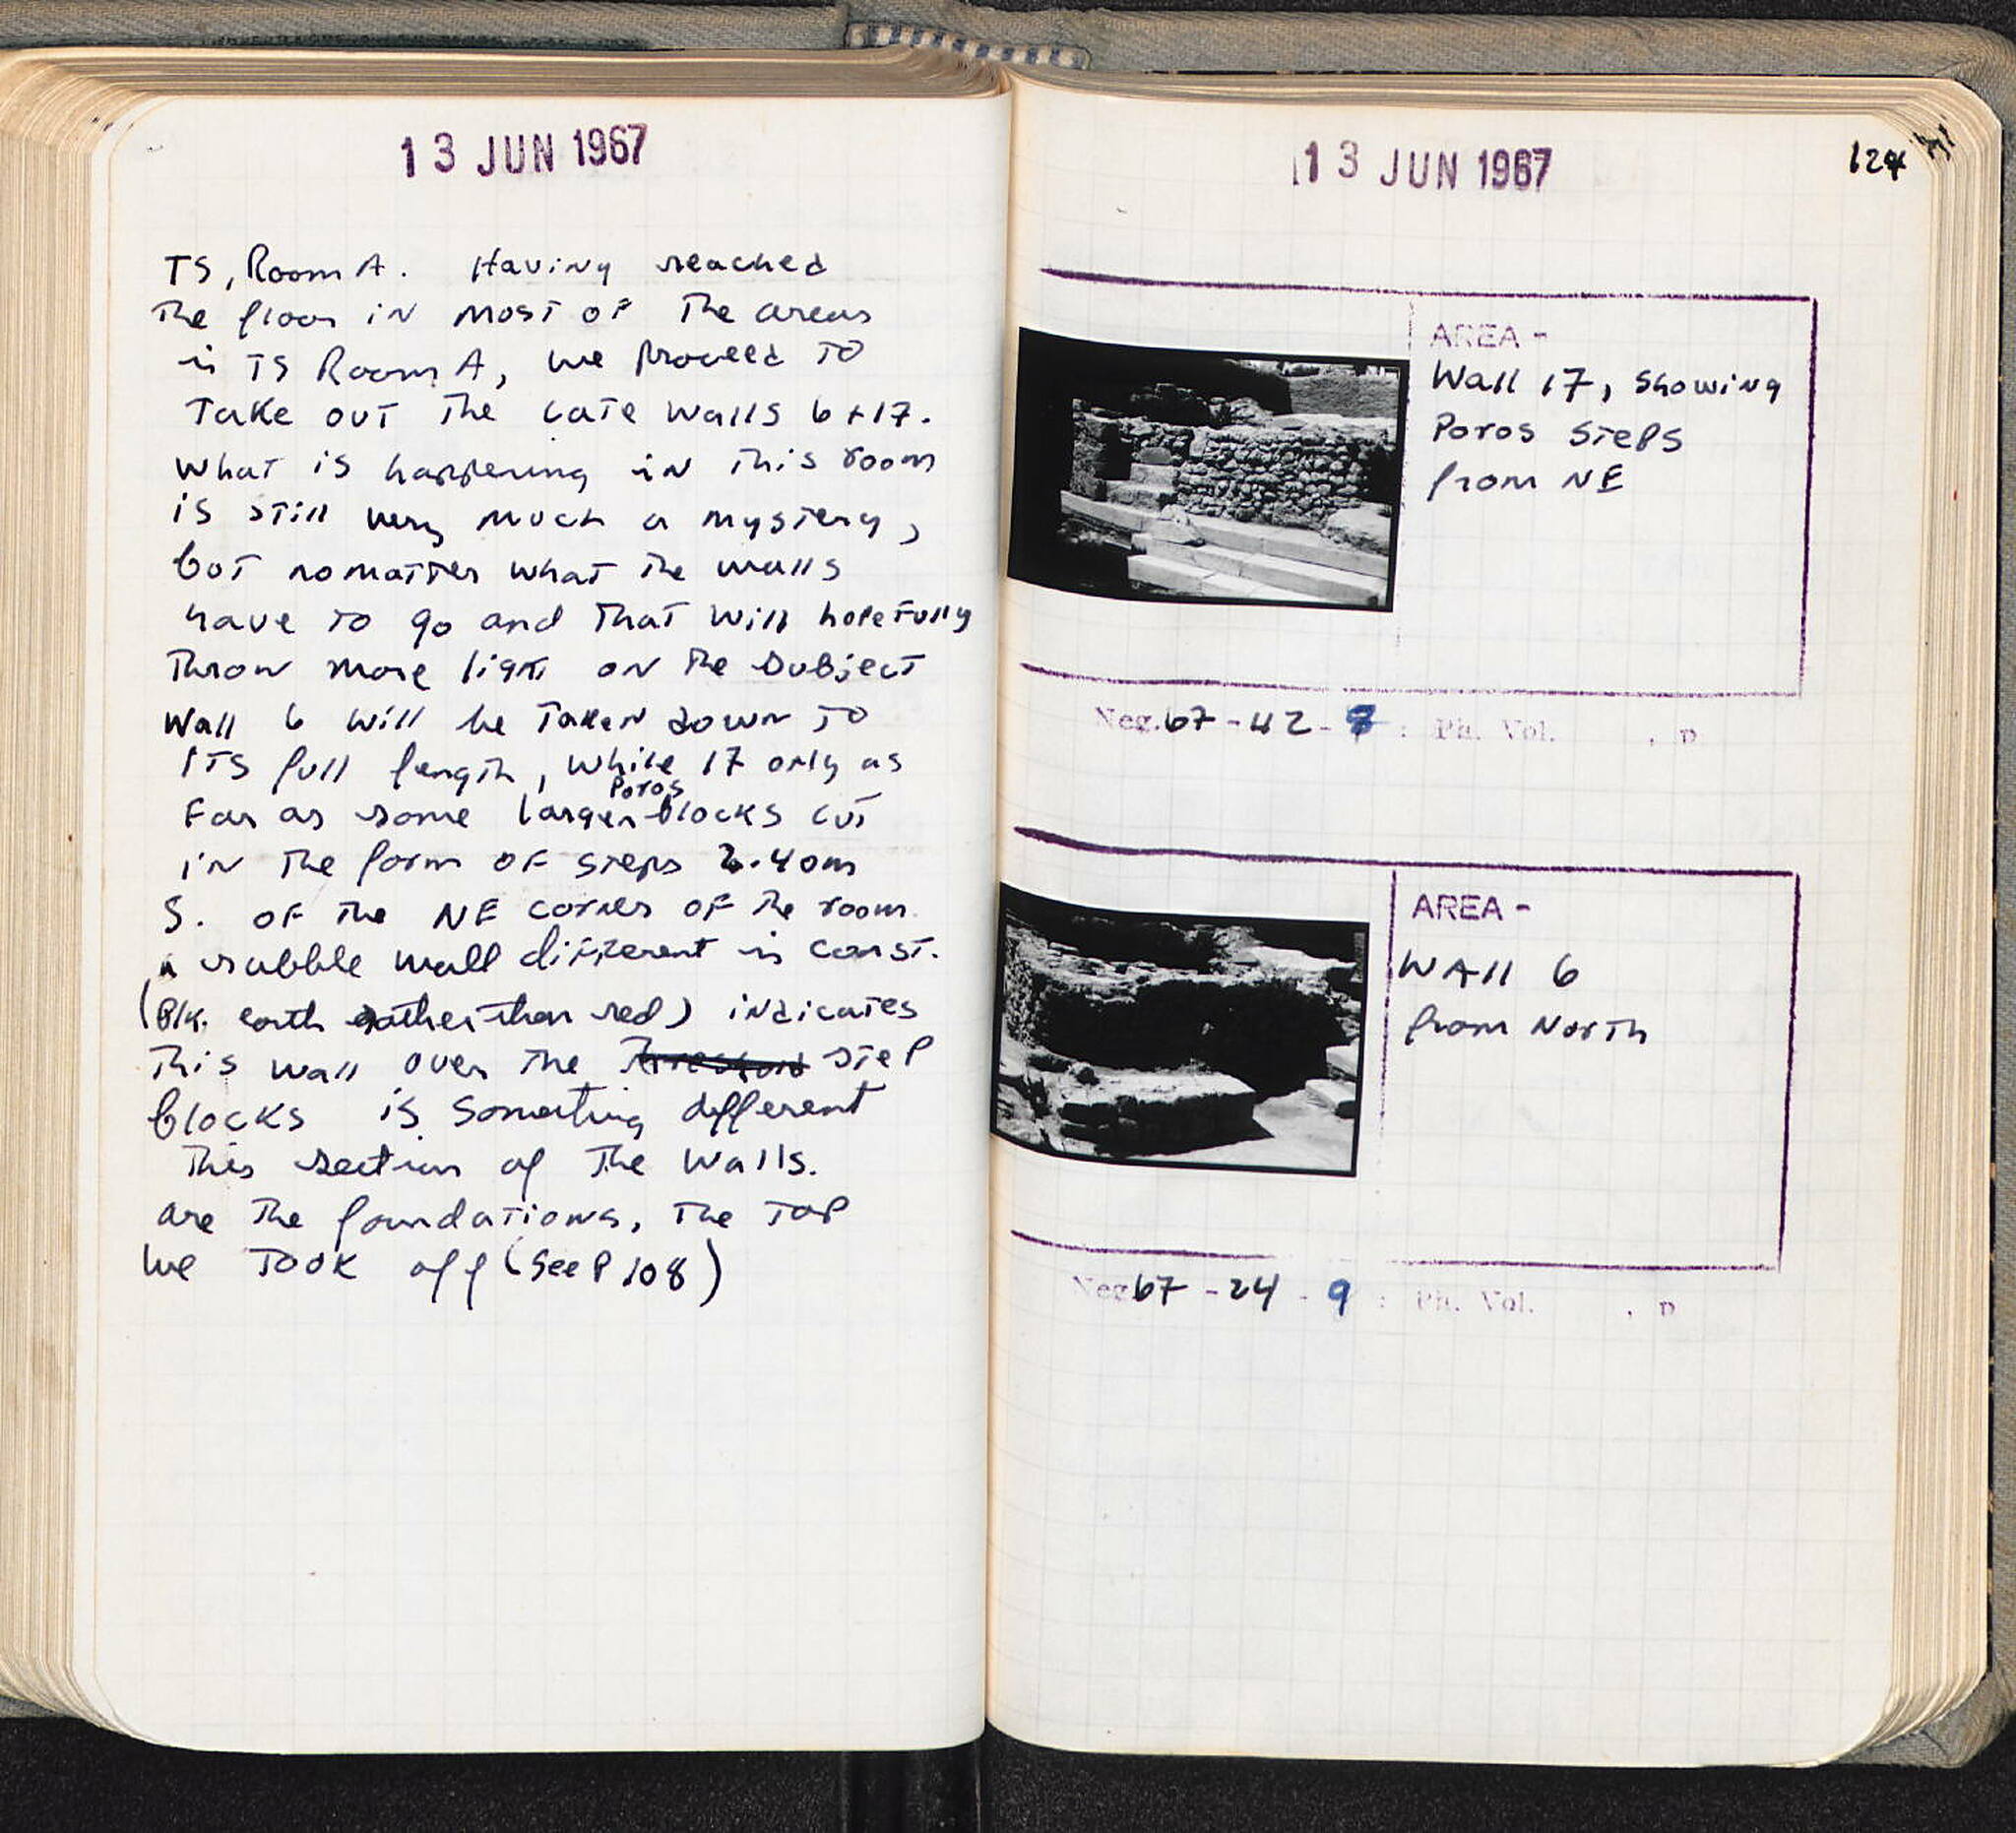 13 JUN 1967
TS, Room A. Having reached
The floor in most of The areas
in TS Room A, we proceed To
Take out The late walls 6 + 17.
What is happening in This room
is still very much a mystery,
but nomatter what The walls
have To go and That will hopefully
Throw more light on The subject
Wall 6 will be Taken down To
ITS full length, while 17 only as
Poros
Far as some larger blocks cut
in The form of steps 2.40m
S. of The NE corner of The room.
a rubble wall different in const.
(Blk. earth rather than red) indicates
This wall over The Threshold step
blocks is something different
This section of The walls.
are The foundations, The Top
we Took off (See P 108)
13 JUN 1967
124
AREA -
Wall 17, showing
Poros steps
from NE
Neg. 67 - 42 - : Ph. Vol. , p
AREA -
WAll 6
from North
Neg. 67 - 24 - 9 : Ph. Vol. , p